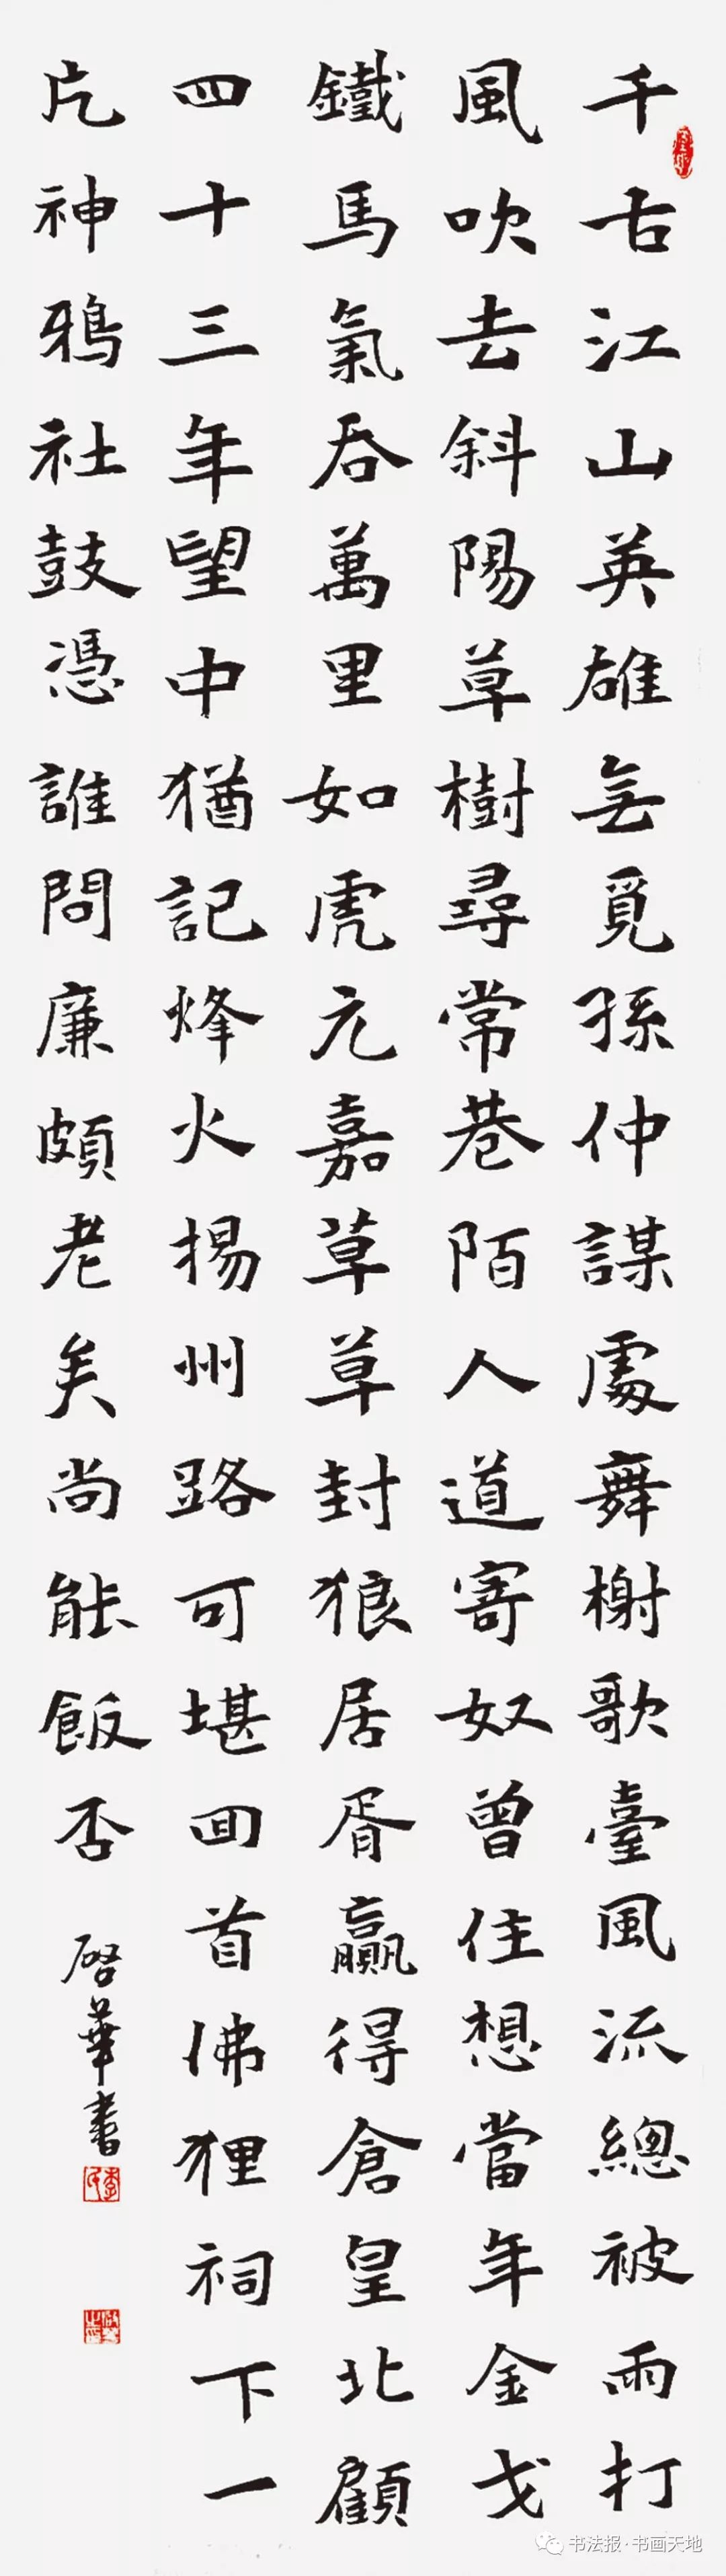 千古江山英雄無覓孫仲謀處舞榭歌臺風流總被雨打
風吹去斜陽草樹尋常巷陌人道寄奴曾住想當年金戈
鐵馬氣吞萬里如虎元嘉草草封狼居胥贏得倉皇北顧
四十三年望中猶記烽火揚州路可堪回首佛狸祠下一
片神鴉社鼓憑誰問廉頗老矣尚能飯否
啓華書
书法报·书画天地